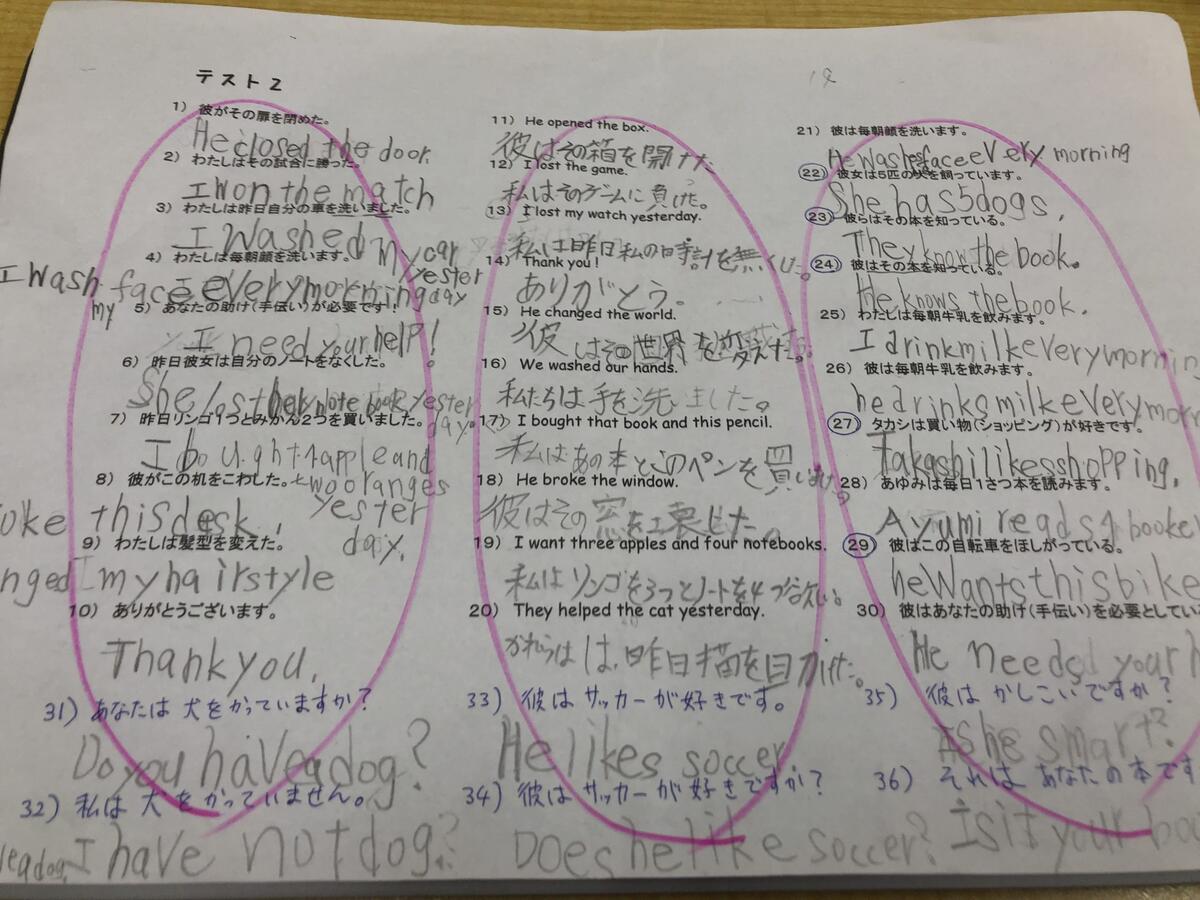 テスト2
1) 彼がその扉を閉めた。
He closed the door.
2) わたしはその試合に勝った。
I won the match
3) わたしは昨日自分の車を洗いました。
I washed my car
yester
day
4) わたしは毎朝顔を洗います。
I wash face every morning
my
5) あなたの助け(手伝い)が必要です!
I need your help!
6) 昨日彼女は自分のノートをなくした。
She last her note book yester
day.
7) 昨日リンゴ1つとみかん2つを買いました。
I bought 1 apple and
two oranges
yester
day.
8) 彼がこの机をこわした。
oke this desk.
9) わたしは髪型を変えた。
nged I my hairstyle
10) ありがとうございます。
Thank you.
11) He opened the box.
彼はその箱を開けた
12) I lost the game.
私はそのゲームに負けた。
13) I lost my watch yesterday.
私は昨日私の時計を無くした。
14) Thank you!
ありがとう。
15) He changed the world.
彼はその世界を変えた。
16) We washed our hands.
私たちは手を洗いました。
17) I bought that book and this pencil.
私はあの本とこのペンを買いました。
18) He broke the window.
彼はその窓を壊した。
19) I want three apples and four notebooks.
私はリンゴを3つとノートを4つ欲しい。
20) They helped the cat yesterday.
かれらは は、昨日猫を助けた。
21) 彼は毎朝顔を洗います。
He washes face every morning
22) 彼女は5匹の犬を飼っています。
She has 5 dogs.
23) 彼らはその本を知っている。
They know the book.
24) 彼はその本を知っている。
He knows the book.
25) わたしは毎朝牛乳を飲みます。
I drink milk every mornin
26) 彼は毎朝牛乳を飲みます。
he drinks milk every morn
27) タカシは買い物(ショッピング)が好きです。
Takashi likes shopping.
28) あゆみは毎日1さつ本を読みます。
Ayumi reads 1 booke
29) 彼はこの自転車をほしがっている。
he wants this bike
30) 彼はあなたの助け(手伝い)を必要としてい
He needs your h
31) あなたは 犬を かっていますか?
Do you have a dog?
32) 私は 犬を かっていません。
I have not dog?
ve a dog.
33) 彼は サッカーが 好きです。
He likes soccer
34) 彼は サッカーが 好きですか?
Does he like soccer?
35) 彼は かしこいですか?
Is he smart?
36) それは あなたの 本です
Is it your boo